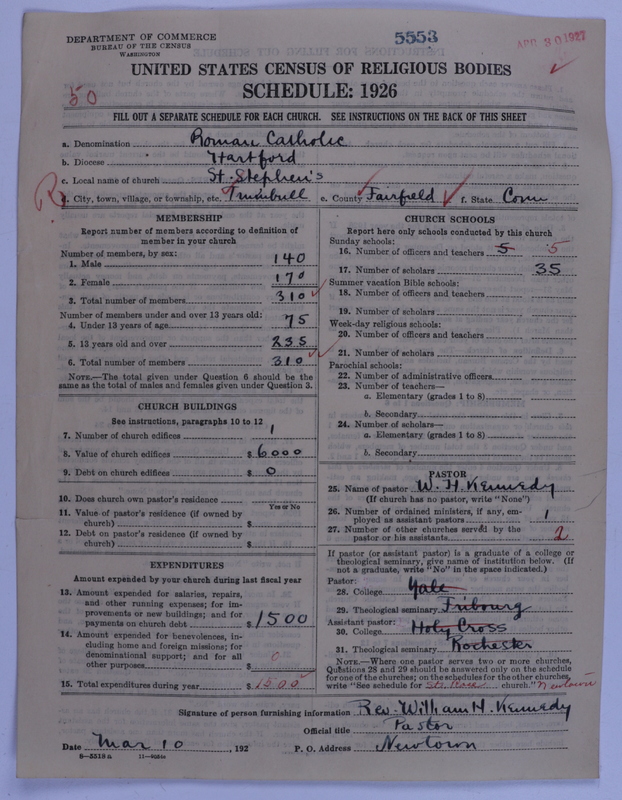 DEPARTMENT OF COMMERCE
BUREAU OF THE CENSUS
WASHINGTON
5553
APR 30 1927
UNITED STATES CENSUS OF RELIGIOUS BODIES
SCHEDULE: 1926
50
FILL OUT A SEPARATE SCHEDULE FOR EACH CHURCH. SEE INSTRUCTIONS ON THE BACK OF THIS SHEET
a. Denomination Roman Catholic
b. Diocese Hartford
c. Local name of church St. Stephen's
R
d. City, town, village, or township, etc. Trumbull e. County Fairfield f. State Conn
MEMBERSHIP
Report number of members according to definition of
member in your church
Number of members, by sex:
1. Male 140
2. Female 170
3. Total number of members 310
Number of members under and over 13 years old:
4. Under 13 years of age 75
5. 13 years old and over 235
6. Total number of members 310
NOTE.—The total given under Question 6 should be the
same as the total of males and females given under Question 3.
CHURCH BUILDINGS
See instructions, paragraphs 10 to 12
7. Number of church edifices 1
8. Value of church edifices $ 6000
9. Debt on church edifices $ 0
10. Does church own pastor's residence
Yes or No
11. Value of pastor's residence (if owned by
church) $
12. Debt on pastor's residence (if owned by
church) $
EXPENDITURES
Amount expended by church during last fiscal year
13. Amount expended for salaries, repairs,
and other running expenses; for im-
provements or new buildings; and for
payments on church debt $ 1500
14. Amount expended for benevolences, in-
cluding home and foreign missions; for
denominational support; and for all
other purposes $ 0
15. Total expenditures during year $ 1500
CHURCH SCHOOLS
Report here only schools conducted by this church
Sunday schools:
16. Number of officers and teachers 5 5
17. Number of scholars 35
Summer vacation Bible schools:
18. Number of officers and teachers
19. Number of scholars
Week-day religious schools:
20. Number of officers and teachers
21. Number of scholars
Parochial schools:
22. Number of administrative officers
23. Number of teachers—
a. Elementary (grades 1 to 8)
b. Secondary
24. Number of scholars—
a. Elementary (grades 1 to 8)
b. Secondary
PASTOR
25. Name of pastor W. H. Kennedy
(If church has no pastor, write "None")
26. Number of ordained ministers, if any, em-
ployed as assistant pastors 1
27. Number of other churches served by the
pastor or his assistants 2
If pastor (or assistant pastor) is a graduate of a college or
theological seminary, give name of institution below. (If
not a graduate, write "No" in the space indicated.)
Pastor:
28. College Yale
29. Theological seminary Fribourg
Assistant pastor:
30. College Holy Cross
31. Theological seminary Rochester
NOTE.—Where one pastor serves two or more churches,
Questions 28 and 29 should be answered only on the schedule
for one of the churches; on the schedules for the other churches,
write "See schedule for St. Rose church." Newtown
Signature of person furnishing information Rev. William H. Kennedy
Official title Pastor
Date Mar 10, 192 P. O. Address Newtown
8—5518 a